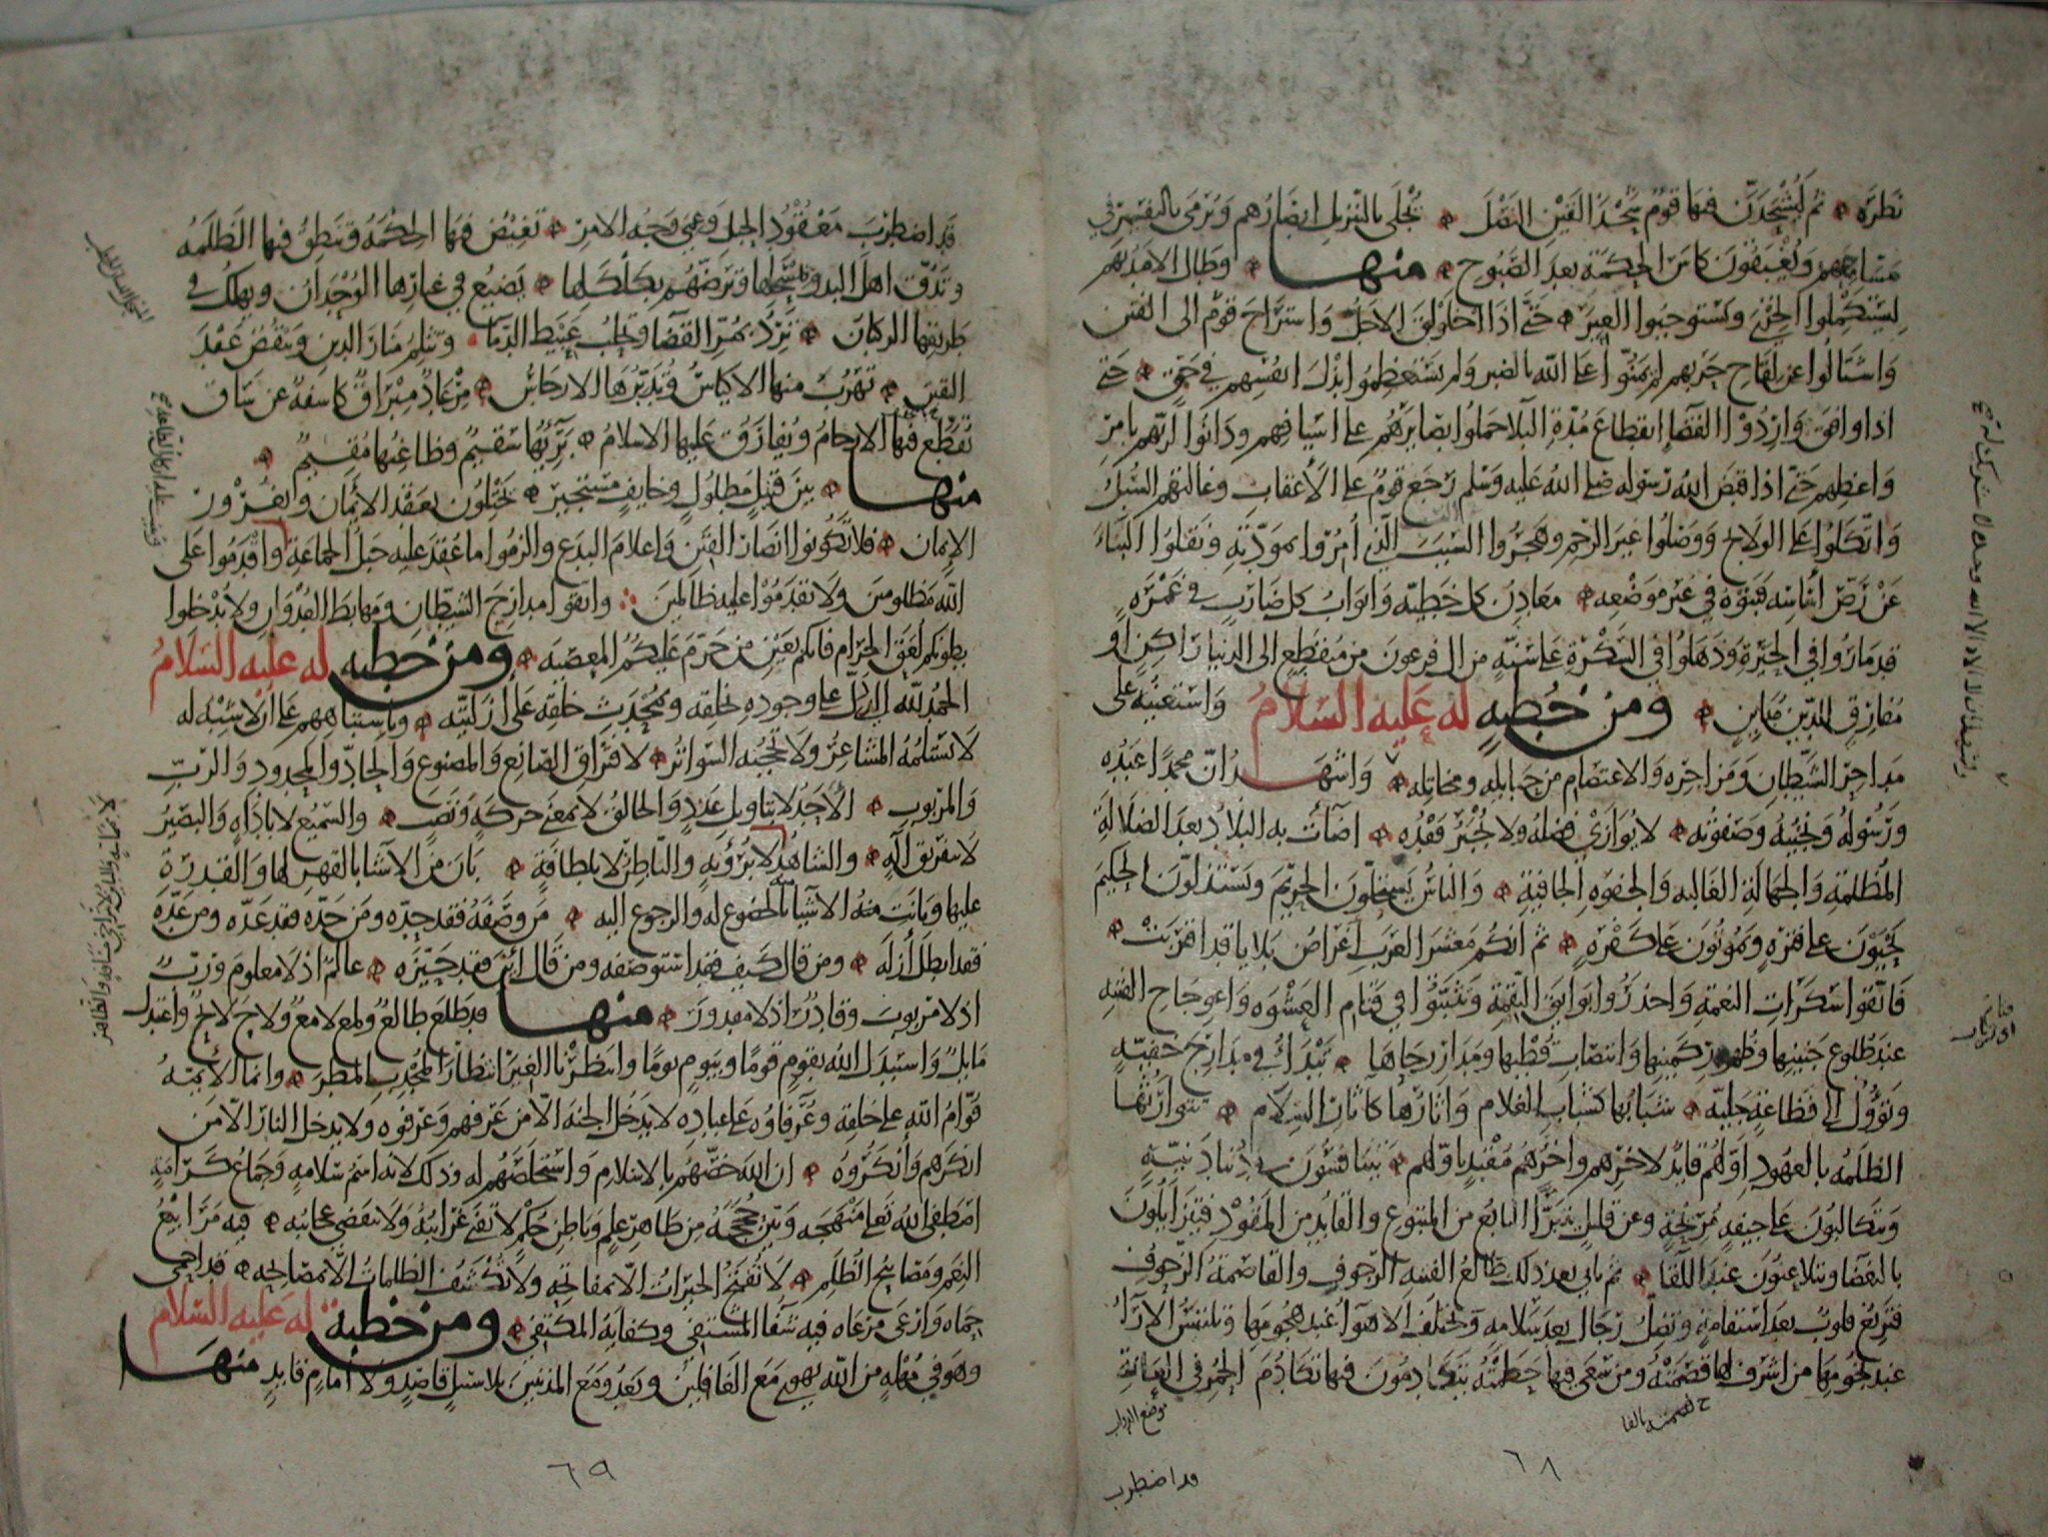 نظره ثم ليشحذن فيها قوم شحذ القين النصل تجلى بالتنزيل ابصارهم ويرمى بالتفسير في
مسامعهم ويغبقون كاس الحكمة بعد الصبوح منها وطال الامد بهم
ليستكملوا الخزي ويستوجبوا الغير حتى اذا اخلولق الاجل واستراح قوم الى الفتن
واشتالوا عن لقاح حربهم لم يمنوا على الله بالصبر ولم يستعظموا بذل انفسهم في حق حتى
اذا وافق وارد القضا انقطاع مدة البلا حملوا بصايرهم على اسيافهم ودانوا لربهم بامر
واعظهم حتى اذا قبض الله رسوله صلى الله عليه وسلم رجع قوم على الاعقاب وغالتهم السبل
واتكلوا على الولايج ووصلوا غير الرحم وهجروا السبب الذي امروا بمودته ونقلوا البناء
عن رص اساسه فبنوه في غير موضعه معادن كل خطيئة وابواب كل ضارب في غمرة
قد ماروا في الحيرة وذهلوا في السكرة على سنة من ال فرعون من منقطع الى الدنيا راكن او
مفارق للدين مباين ومن خطبه له عليه السلام واستعينه على
مداحر الشيطان ومزاجره والاعتصام من حبايله ومخاتله واشهد ان محمدا عبده
ورسوله ونجيبه وصفوته لا يوازى فضله ولا يجبر فقده اضاءت به البلاد بعد الضلالة
المظلمة والجهالة الغالبه والجفوه الجافية والناس يستحلون الحريم ويستذلون الحكيم
يحيون على فترة ويموتون على كفرة ثم انكم معشر العرب اغراض بلايا قد اقتربت
فاتقوا سكرات النعمة واحذروا بوايق النقمة وتثبتوا في قتام العشوه واعوجاج الفتنه
عند طلوع جنينها وظهور كمينها وانتصاب قطبها ومدار رحاها تبدا في مدارج خفية
وتؤول الى فظاعة جلية شبابها كشباب الغلام واثارها كاثار السلام تتوارثها
الظلمه بالعهود اولهم قايد لاخرهم واخرهم مقتد باولهم يتنافسون في دنيا دنية
ويتكالبون على جيفة مريحة وعن قليل يتبرا التابع من المتبوع والقايد من المقود فيتزايلون
بالبغضا ويتلاعنون عند اللقا ثم ياتي بعد ذلك طالع الفتنه الرجوف والقاصمة الزحوف
فتزيغ قلوب بعد استقامة وتضل رجال بعد سلامة وتختلف الاهوا عند هجومها وتلتبس الارآء
عند نجومها من اشرف لها قصمته ومن سعى فيها حطمته يتكادمون فيها تكادم الحمر في العانة
قد اضطرب
٦٨
قد اضطرب معقود الحبل وعمي وجه الامر تغيض فيها الحكمة وتنطق فيها الظلمه
وتدق اهل البدو بمسحلها وترضهم بكلكلها يضيع في غبارها الوحدان ويهلك في
طريقها الركبان ترد بمر القضا وتحلب عبيط الدما وتثلم منار الدين وتنقض عقد
اليقين تهرب منها الاكياس وتدبرها الارجاس مرعاد مبراق كاشفة عن ساق
تقطع فيها الارحام ويفارق عليها الاسلام بريها سقيم وظاعنها مقيم
منها بين قتيل مطلول وخايف مستجير يختلون بعقد الايمان وبغرور
الايمان فلا تكونوا انصاب الفتن واعلام البدع والزموا ما عقد عليه حبل الجماعة واقدموا على
الله مظلومين ولا تقدموا عليه ظالمين واتقوا مدارج الشيطان ومهابط العدوان ولا تدخلوا
بطونكم لعق الحرام فانكم بعين من حرم عليكم المعصية ومن خطبه له عليه السلام
الحمد لله الدال على وجوده بخلقه وبمحدث خلقه على ازليته وباشتباههم على ان لا شبه له
لا تستلمه المشاعر ولا تحجبه السواتر لافتراق الصانع والمصنوع والحاد والمحدود والرب
والمربوب الاحد لا بتاويل عدد والخالق لا بمعنى حركة ونصب والسميع لا باداه والبصير
لا بتفريق آله والشاهد لا برؤية والباطن لا بلطافة بان من الاشيا بالقهر لها والقدرة
عليها وبانت منه الاشيا بالخضوع له والرجوع اليه من وصفه فقد حده ومن حده فقد عده ومن عده
فقد ابطل ازله ومن قال كيف فقد استوصفه ومن قال اين فقد حيزه عالم اذ لا معلوم ورب
اذ لا مربوب وقادر اذ لا مقدور منها قد طلع طالع ولمع لامع ولاح لايح واعتدل
مايل واستبدل الله بقوم قوما وبيوم يوما وانتظرنا الغير انتظار المجدب المطر وانما الايمة
قوام الله على خلقه وعرفاؤه على عباده لا يدخل الجنة الا من عرفهم وعرفوه ولا يدخل النار الا من
انكرهم وانكروه ان الله خصهم بالاسلام واستخلصهم له وذلك لانه اسم سلامة وجماع كرامة
اصطفى الله تعالى منهجه وبين حججه من ظاهر علم وباطن حكم لا تفنى غرايبه ولا تنقضي عجايبه فيه مرابيع
النعم ومصابيح الظلم لا تفتح الخيرات الا بمفاتحه ولا تكشف الظلمات الا بمصابحه قد احمى
حماه وارعى مرعاه فيه شفا المشتفي وكفاية المكتفي ومن خطبة له عليه السلام
وهو في مهلة من الله يهوي مع الغافلين ويغدو مع المذنبين بلا سبيل قاصد ولا امام قايد منها
٦٩